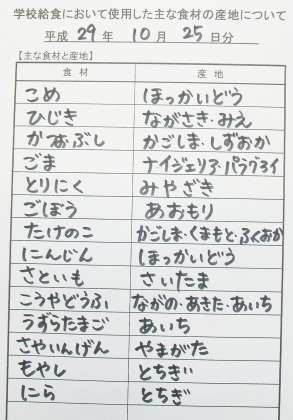 学校給食において使用した主な食材の産地について
平成 29 年 10 月 25 日分
【主な食材と産地】
食材 産地
こめ ほっかいどう
ひじき ながさき・みえ
かつおぶし かごしま・しずおか
ごま ナイジェリア・パラグアイ
とりにく みやざき
ごぼう あおもり
たけのこ かごしま・くまもと・ふくおか
にんじん ほっかいどう
さといも さいたま
こうやどうふ ながの・あきた・あいち
うずらたまご あいち
さやいんげん やまがた
もやし とちぎ
にら とちぎ